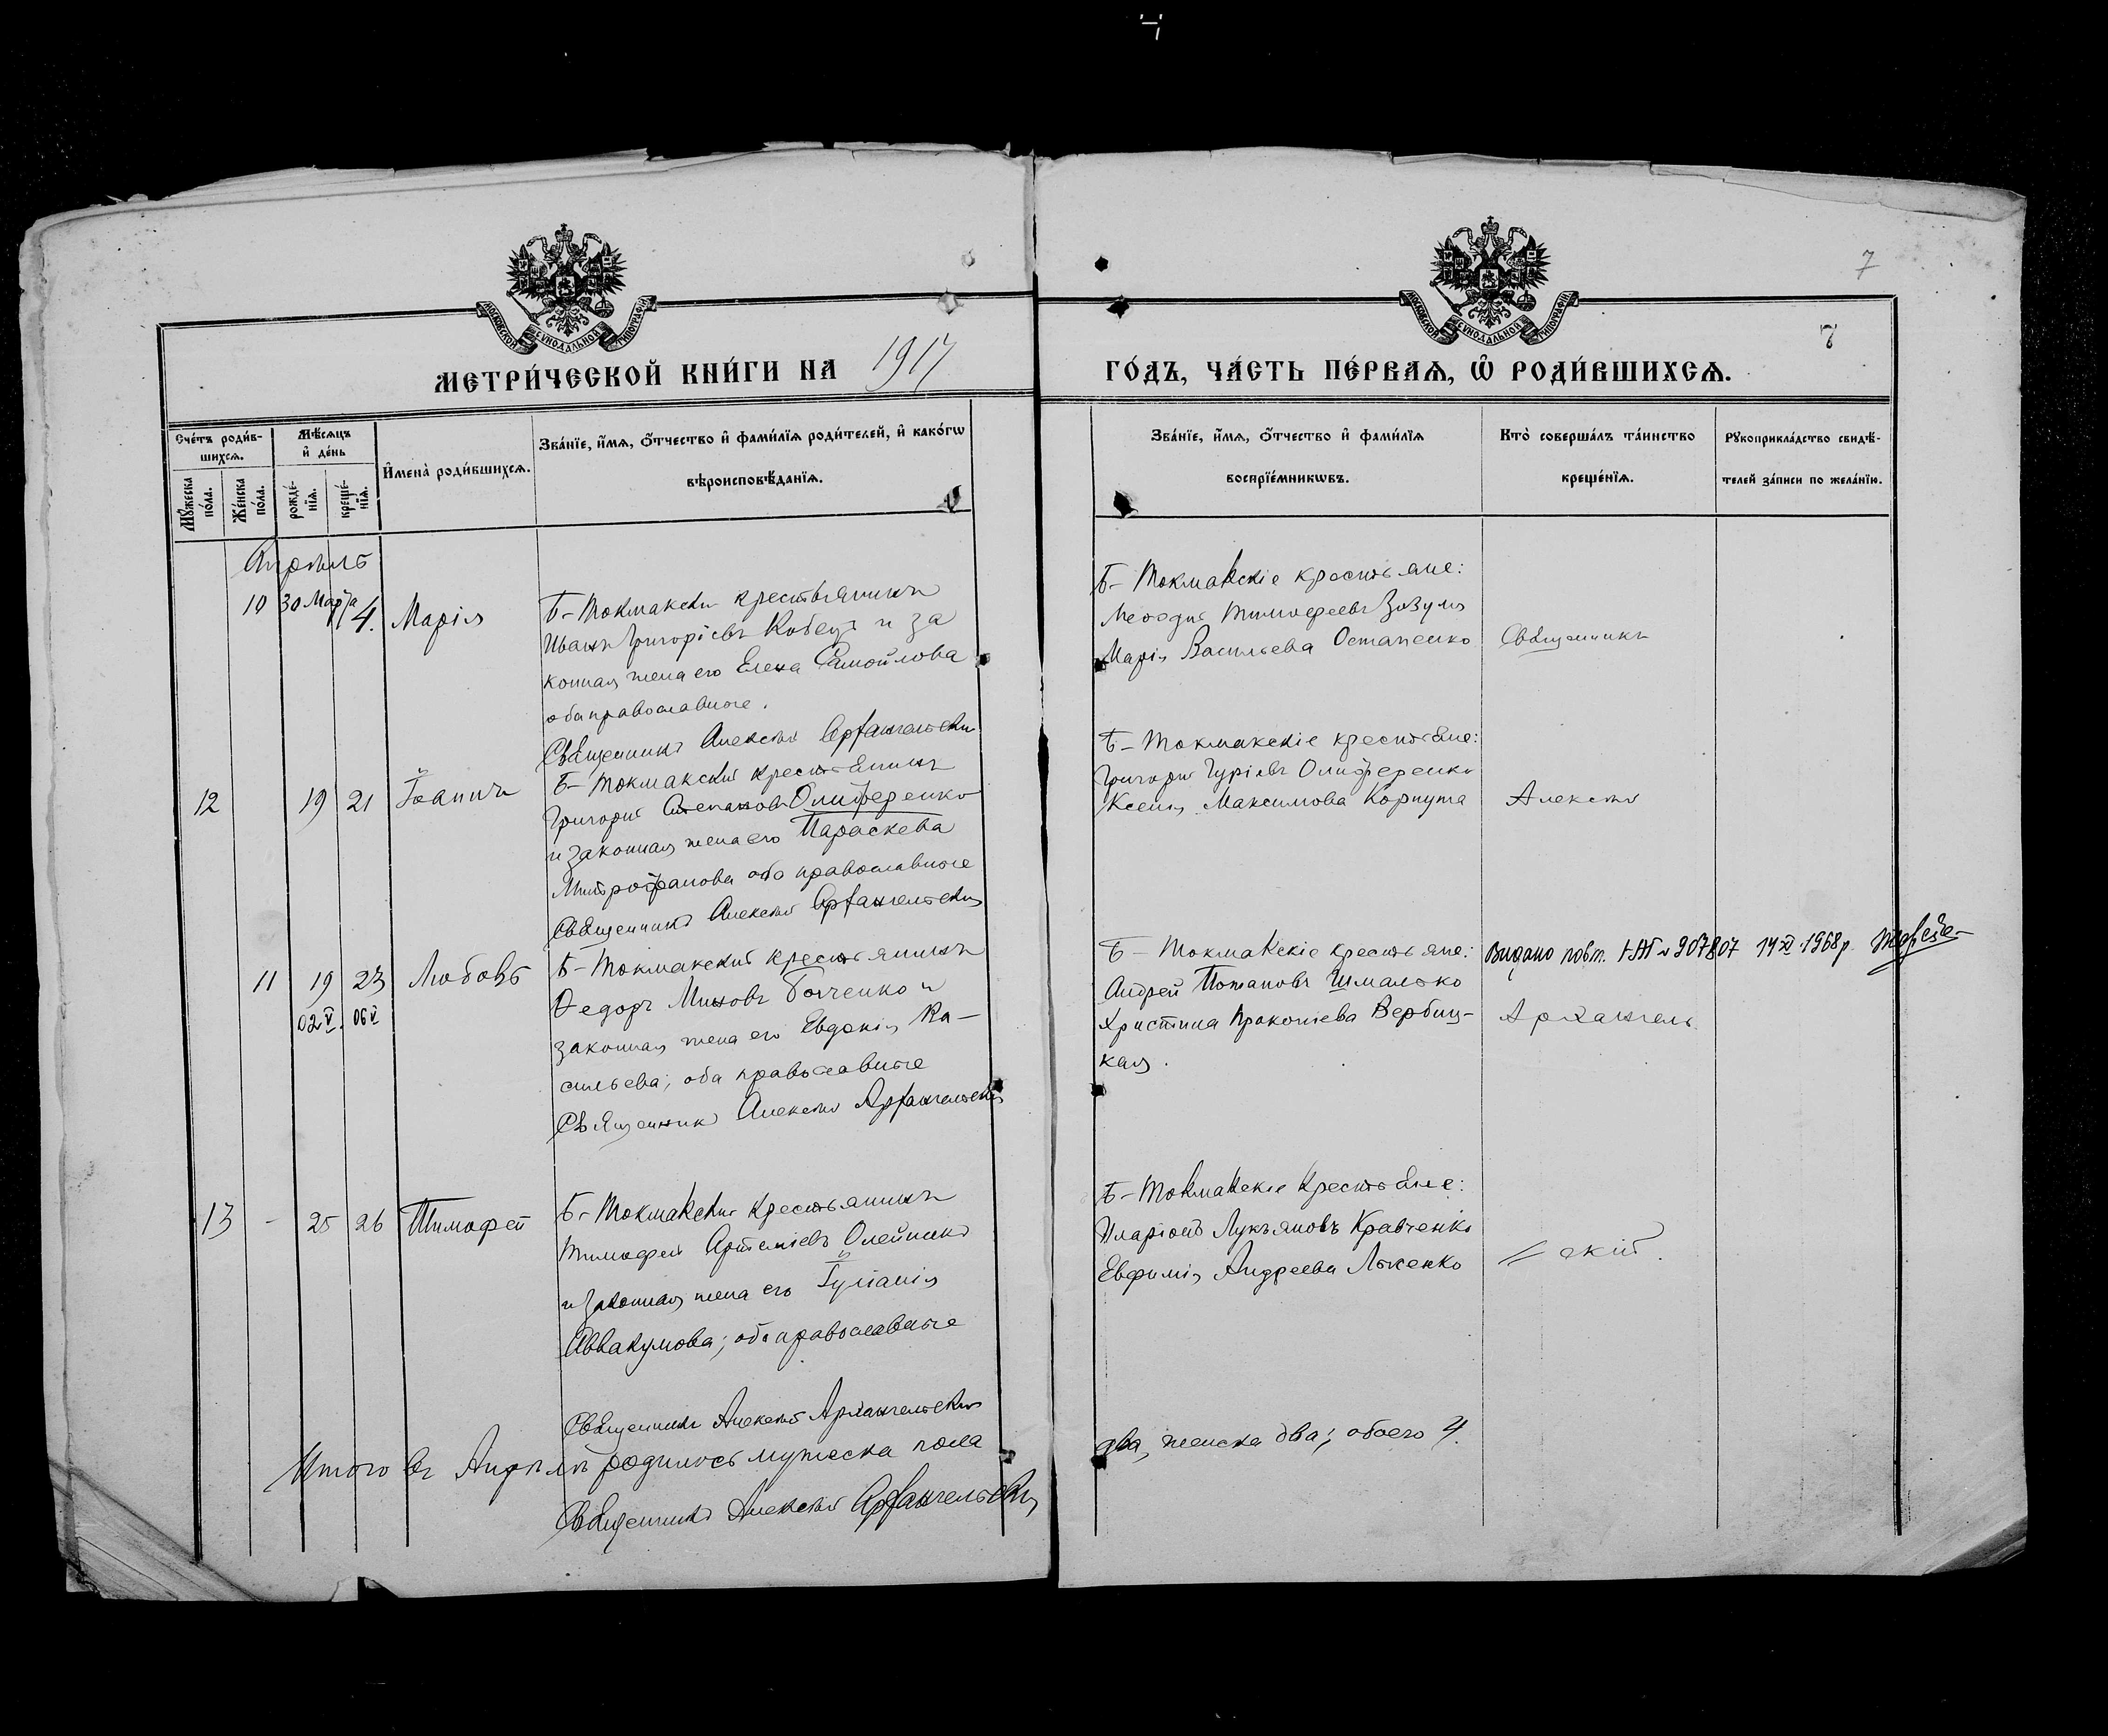 7
МОСКОВСКОЙ СѴНОДАЛЬНОЙ ТИПОГРАФІИ
МОСКОВСКОЙ СѴНОДАЛЬНОЙ ТИПОГРАФІИ
7
МЕТРИ́ЧЕСКОЙ КНИ́ГИ НА 1917 ГО́ДЪ, ЧА́СТЬ ПЕ́РВАѦ, Ѡ РОДИ́ВШИХСѦ.
Сче́тъ роди́вшихсѧ.
Мꙋ́жеска по́ла.
Же́нска по́ла.
Мѣ́сѧцъ и҆ де́нь
рожде́нїѧ.
креще́нїѧ.
И҆мена̀ роди́вшихсѧ.
Зва́нїе, и҆́мѧ, ѻ҆́тчество и҆ фами́лїѧ роди́телей, и҆ како́гѡ
вѣроисповѣ́данїѧ.
Зва́нїе, и҆́мѧ, ѻ҆́тчество и҆ фами́лїѧ
воспрїе́мникѡвъ.
Кто̀ соверша́лъ та́инство
креще́нїѧ.
Рꙋкоприкла́дство свидѣ́-
телей за́писи по жела́нїю.
Апрѣль
10 30 Марта 4. Марія
Б-Токмакскій крестьянинъ
Иванъ Григоріевъ Кобецъ и за
конная жена его Елена Самойлова
оба православные.
Священникъ Алексѣй Архангельскій
Б-Токмакскіе крестьяне:
Меѳодій Тимофеевъ Зозуля
Марія Васильева Остапенко
Священникъ
12 19 21 Іоаннъ
Б-Токмакскій крестьянинъ
Григорій Степановъ Олиференко
и законная жена его Параскева
Митрофанова оба православные
Священникъ Алексѣй Архангельскій
Б-Токмакскіе крестьяне:
Григорій Гуріевъ Олиференко
Ксенія Максимова Корпута
Алексѣй
11 19 23 Любовь
02 V. 06 V
Б-Токмакскій крестьянинъ
Ѳедоръ Миновъ Бойченко и
законная жена его Евдокія Ва-
сильева; оба православные
Священникъ Алексѣй Архангельскій
Б-Токмакскіе крестьяне:
Андрей Потаповъ Шмалько
Христина Прокопіева Вербиц-
кая.
Видано повт. І-ЖП № 907807 14 XI 1968 р.
Архангель
13 - 25 26 Тимофей
Б-Токмакскій крестьянинъ
Тимофей Артеміевъ Олейникъ
и законная жена его Іуліанія
Аввакумова; оба православные
Священникъ Алексѣй Архангельскій
Б-Токмакскіе крестьяне:
Иларіонъ Лукьяновъ Кравченко
Евфимія Андреева Лысенко
= скій.
Итого въ Апрѣлѣ родилось мужеска пола два, женска два; обоего 4.
Священникъ Алексѣй Архангельскій